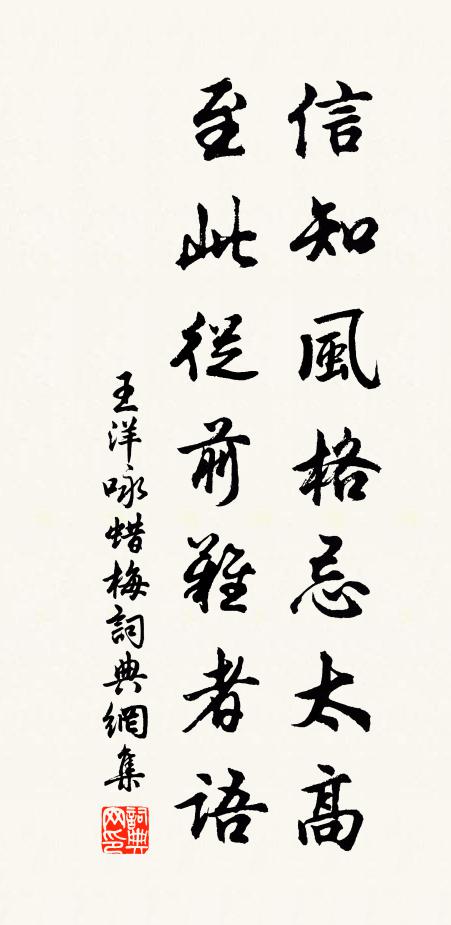 信知風格忌太高
至此從前難者語
王洋咏蜡梅詞典網集
詞典網印